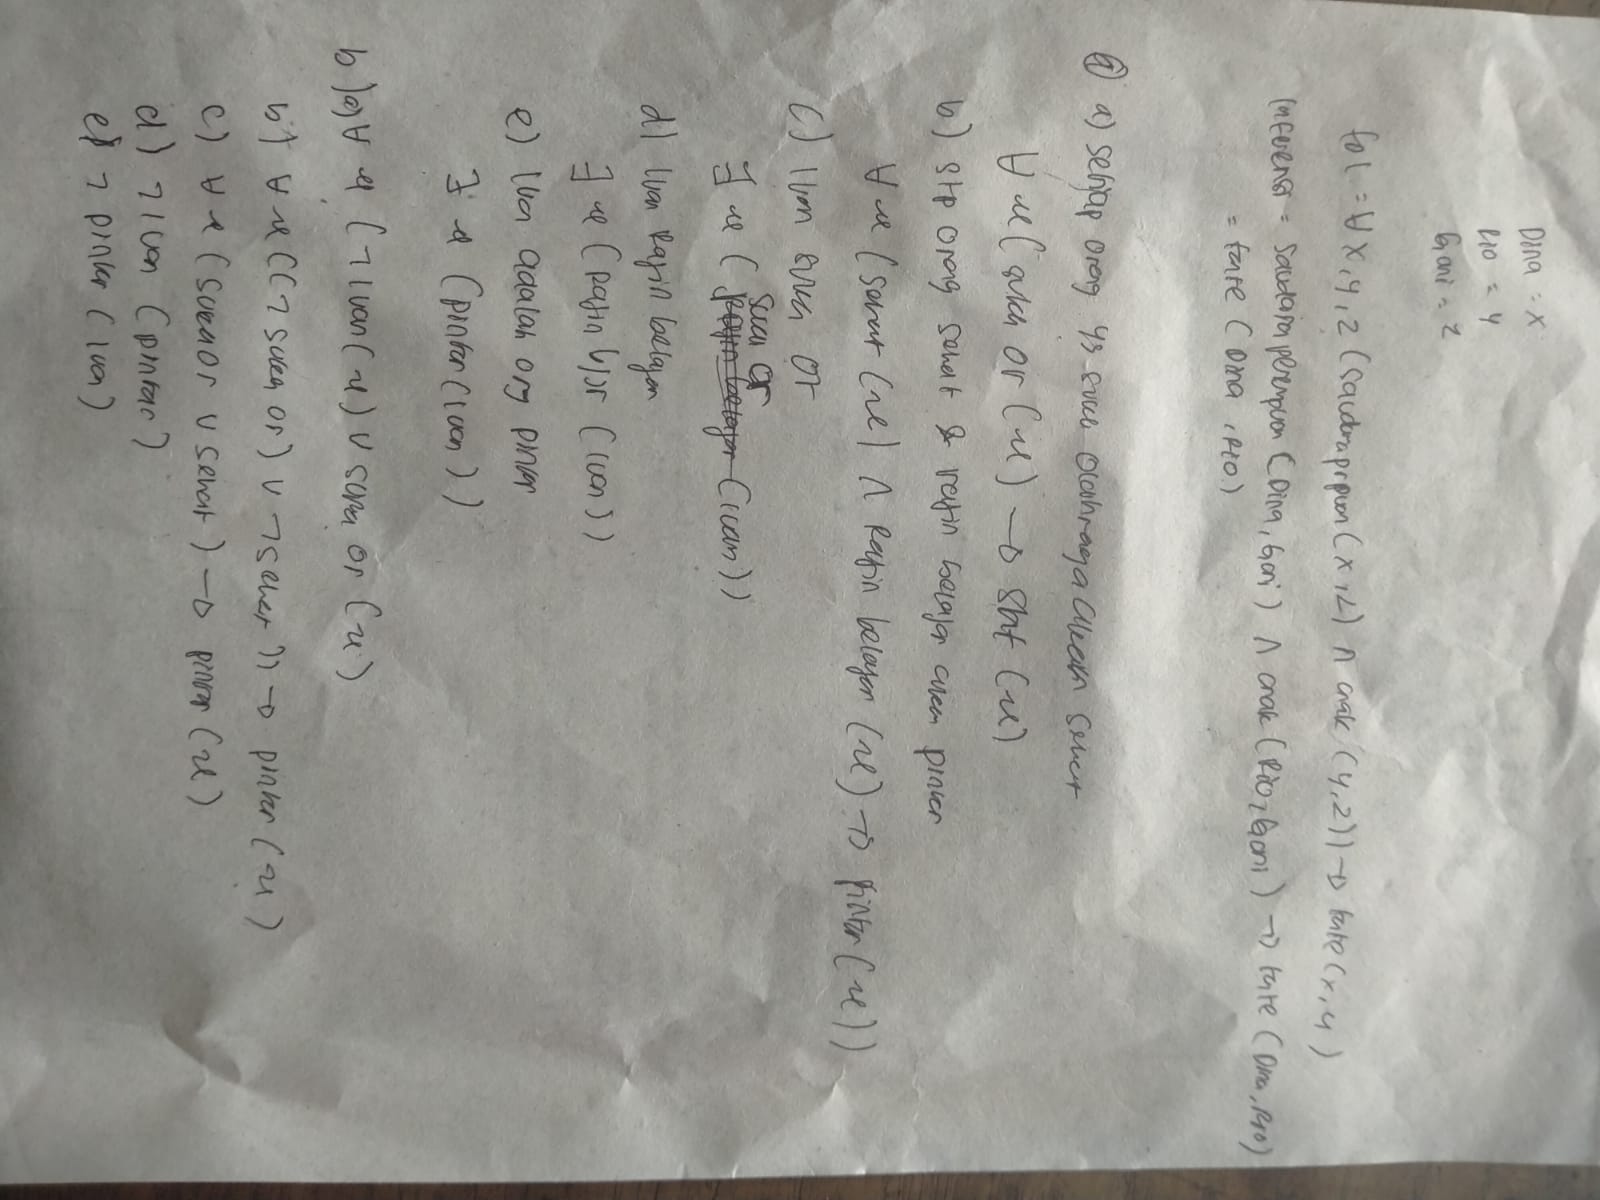 Dina = x
Rio = y
Gani = z
fol = ∀ x, y, z (saudaraprpuan (x, z) ∧ anak (y, z)) → tante (x, y)
Inferensi = saudara perempuan (Dina, Gani) ∧ anak (Rio, Gani) → tante (Dina, Rio)
= tante (Dina, Rio)
a) setiap orang yg suka olahraga akan sehat
∀ x (suka or (x) → sht (x)
b) stp orang sehat & rajin belajar akan pintar
∀ x (sehat (x) ∧ Rajin belajar (x) → pintar (x))
c) Iwan suka or
suka or
∃ x ( (Iwan))
d) Iwan Rajin belajar
∃ x (Rajin bljr (Iwan))
e) Iwan adalah org pintar
∃ x (pintar (Iwan))
b) (a) ∀ x (¬ Iwan (x) ∨ suka or (x)
b) ∀ x ((¬ suka or) ∨ ¬ sehat)) → pintar (x)
c) ∀ x (suka or ∨ sehat) → pintar (x)
d) ¬ Iwan (pintar)
e) ¬ pintar (Iwan)